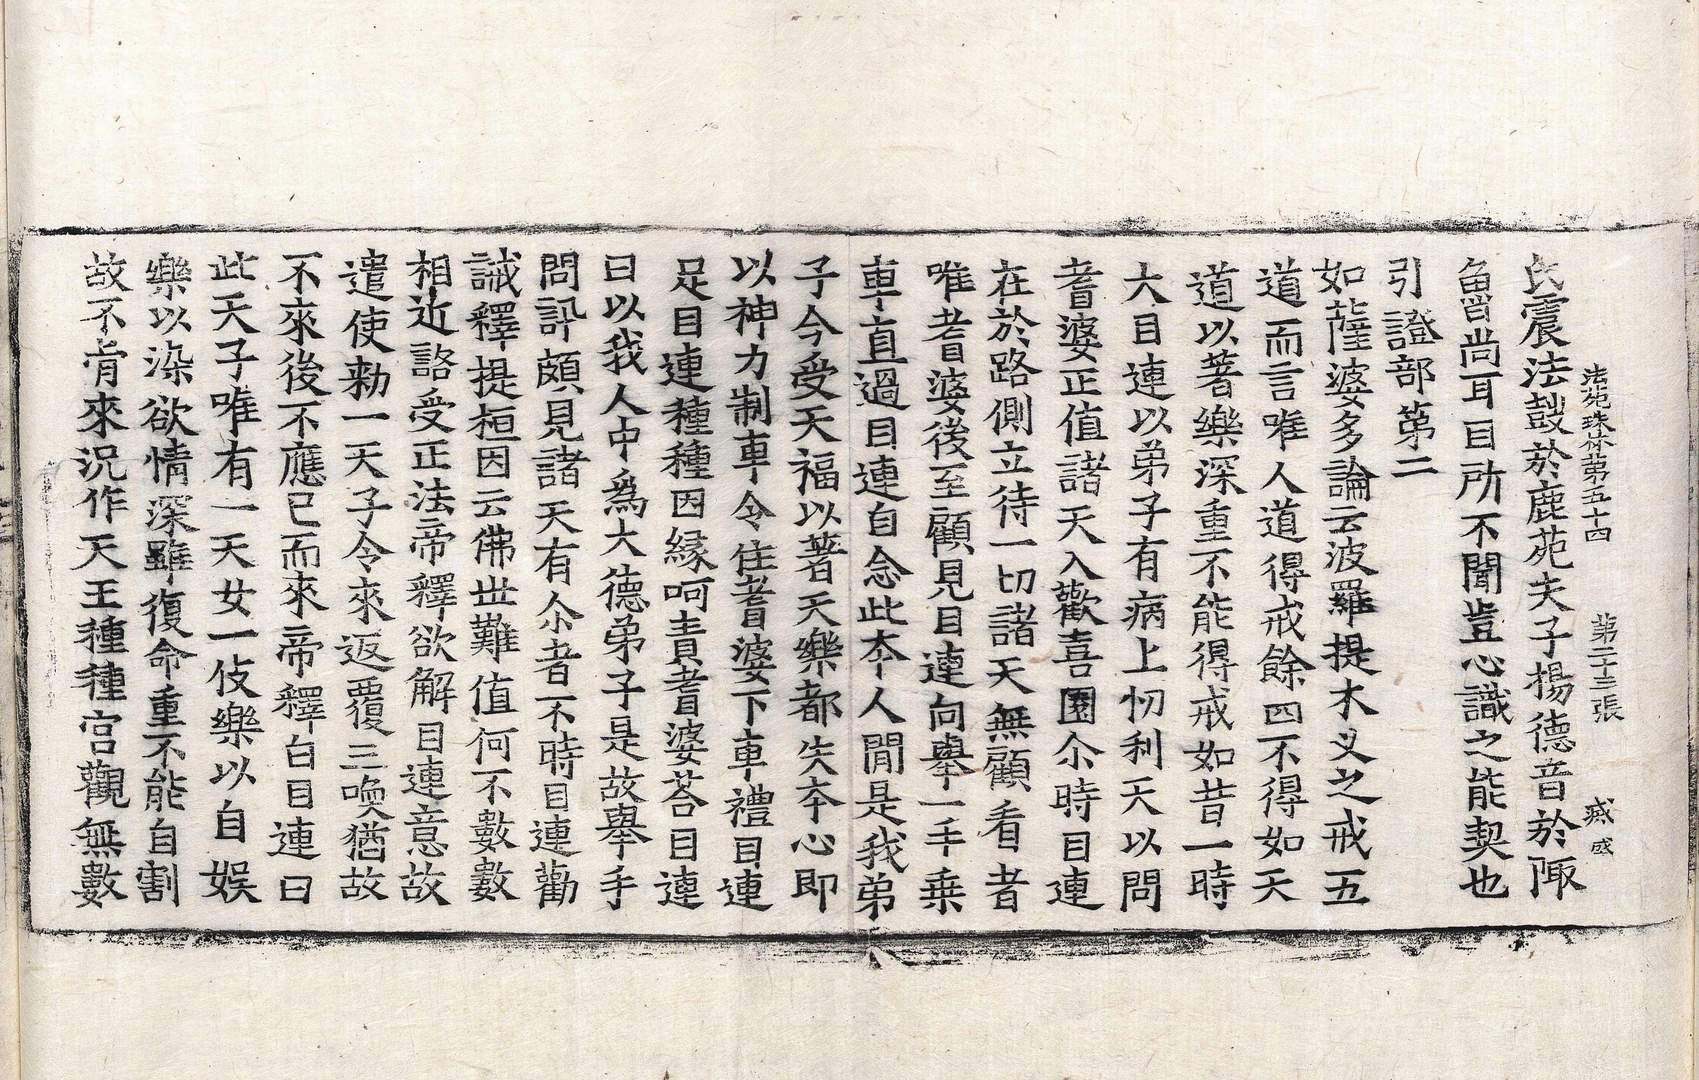 法苑珠林第五十四　第二十三張　感
氏震法鼓於鹿苑夫子揚德音於陬
尙耳目所不聞豈心識之能契也
引證部第二
如薩婆多論云波羅提木义之戒五
道而言唯人道得戒餘四不得如天
道以著樂深重不能得戒如昔一時
大目連以弟子有病上忉利天以問
耆婆正值諸天入歡喜園尒時目連
在於路側立待一切諸天無顧看者
唯耆婆後至顧見目連向舉一手乗
車直過目連自念此夲人閒是我弟
子今受天福以著天樂都失夲心即
以神力制車令住耆婆下車禮目連
足目連種種因緣呵責耆婆荅目連
曰以我人中爲大德弟子是故舉手
問訊頗見諸天有尒者不時目連勸
誡釋提桓因云佛世難值何不數數
相近諮受正法帝釋欲解目連意故
遣使勑一天子令來返覆三喚猶故
不來後不應已而來帝釋白目連曰
此天子唯有一天女一伎樂以自娛
樂以染欲情深雖復命重不能自割
故不肯來況作天王種種宮觀無數